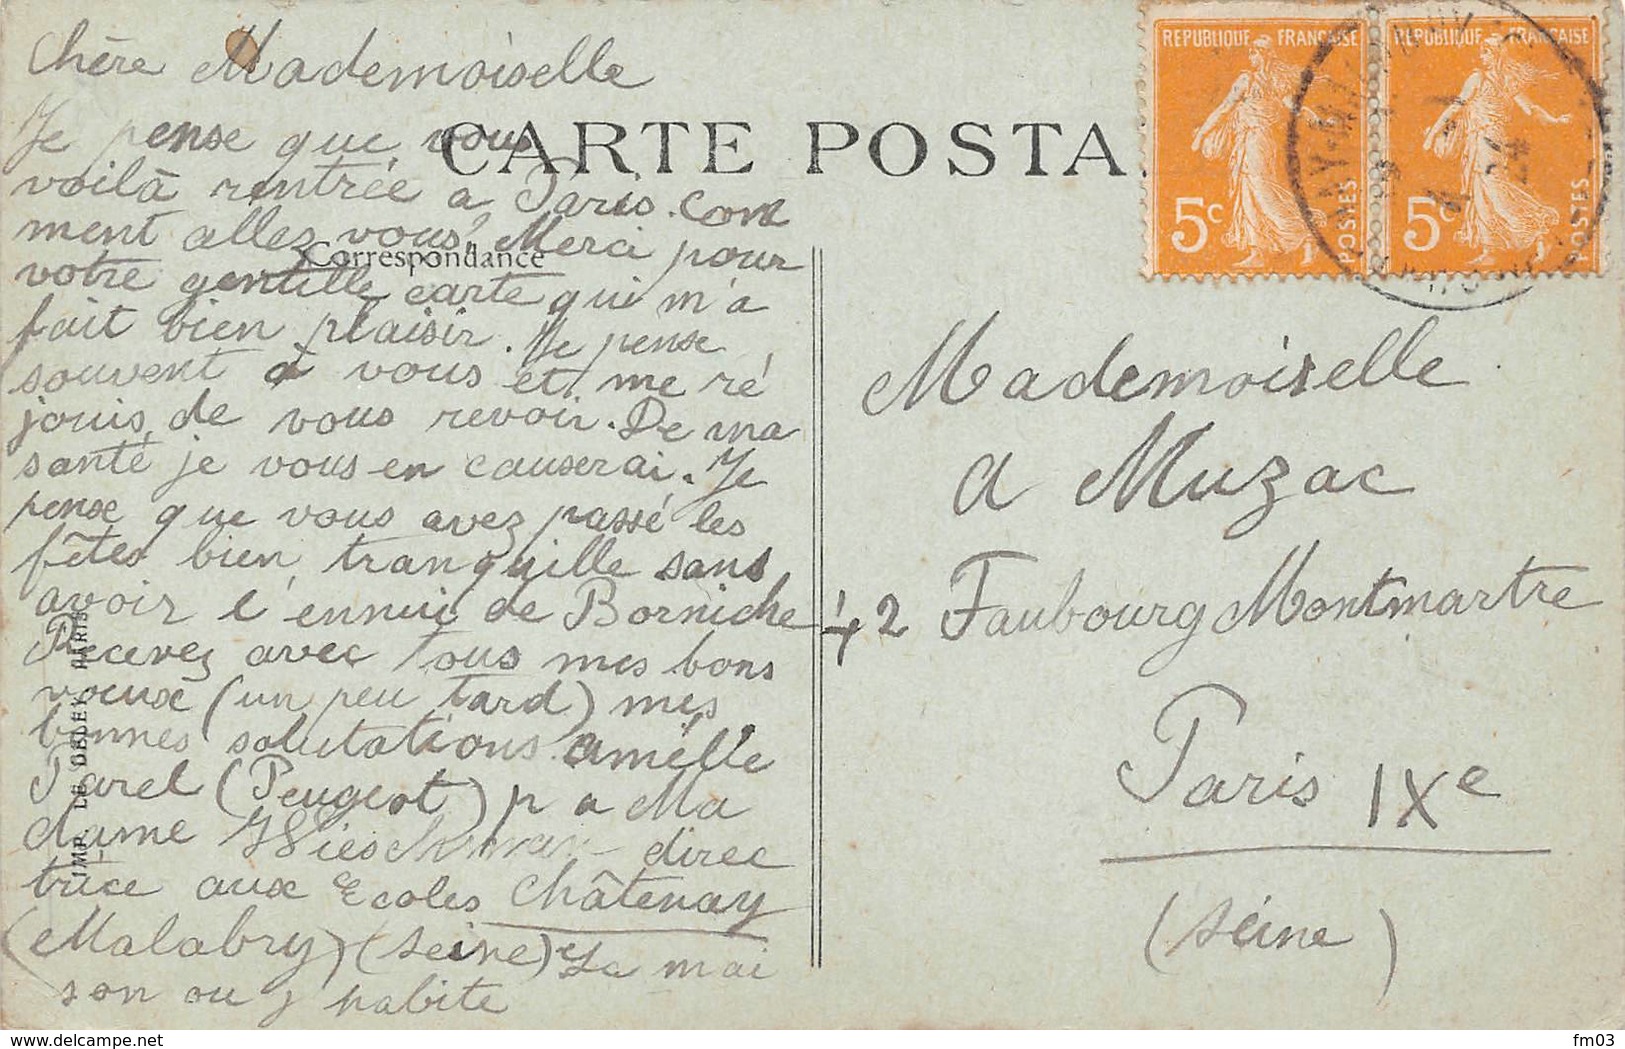 Chère Mademoiselle
Je pense que vous
voilà rentrée a Paris. Com
ment allez vous, Merci pour
votre gentille carte qui m'a
fait bien plaisir. Je pense
souvent a vous et me ré
jouis de vous revoir. De ma
santé je vous en causerai. Je
pense que vous avez passé les
fêtes bien tranquille sans
avoir l'ennui de Borniche
Recevez avec tous mes bons
voeux (un peu tard) mes
bonnes salutations amélie
Parel (Peugeot) p a Ma
dame direc
trice aux Ecoles Châtenay
(Malabry) (seine) La mai
son ou j habite
CARTE POSTA
Correspondance
IMP. LE DELEY, PARIS
REPUBLIQUE FRANÇAISE
5c
POSTES
REPUBLIQUE FRANÇAISE
5c
POSTES
24
Mademoiselle
A Muzac
42 Faubourg Montmartre
Paris IXe
(seine)
www.delcampe.net
fm03